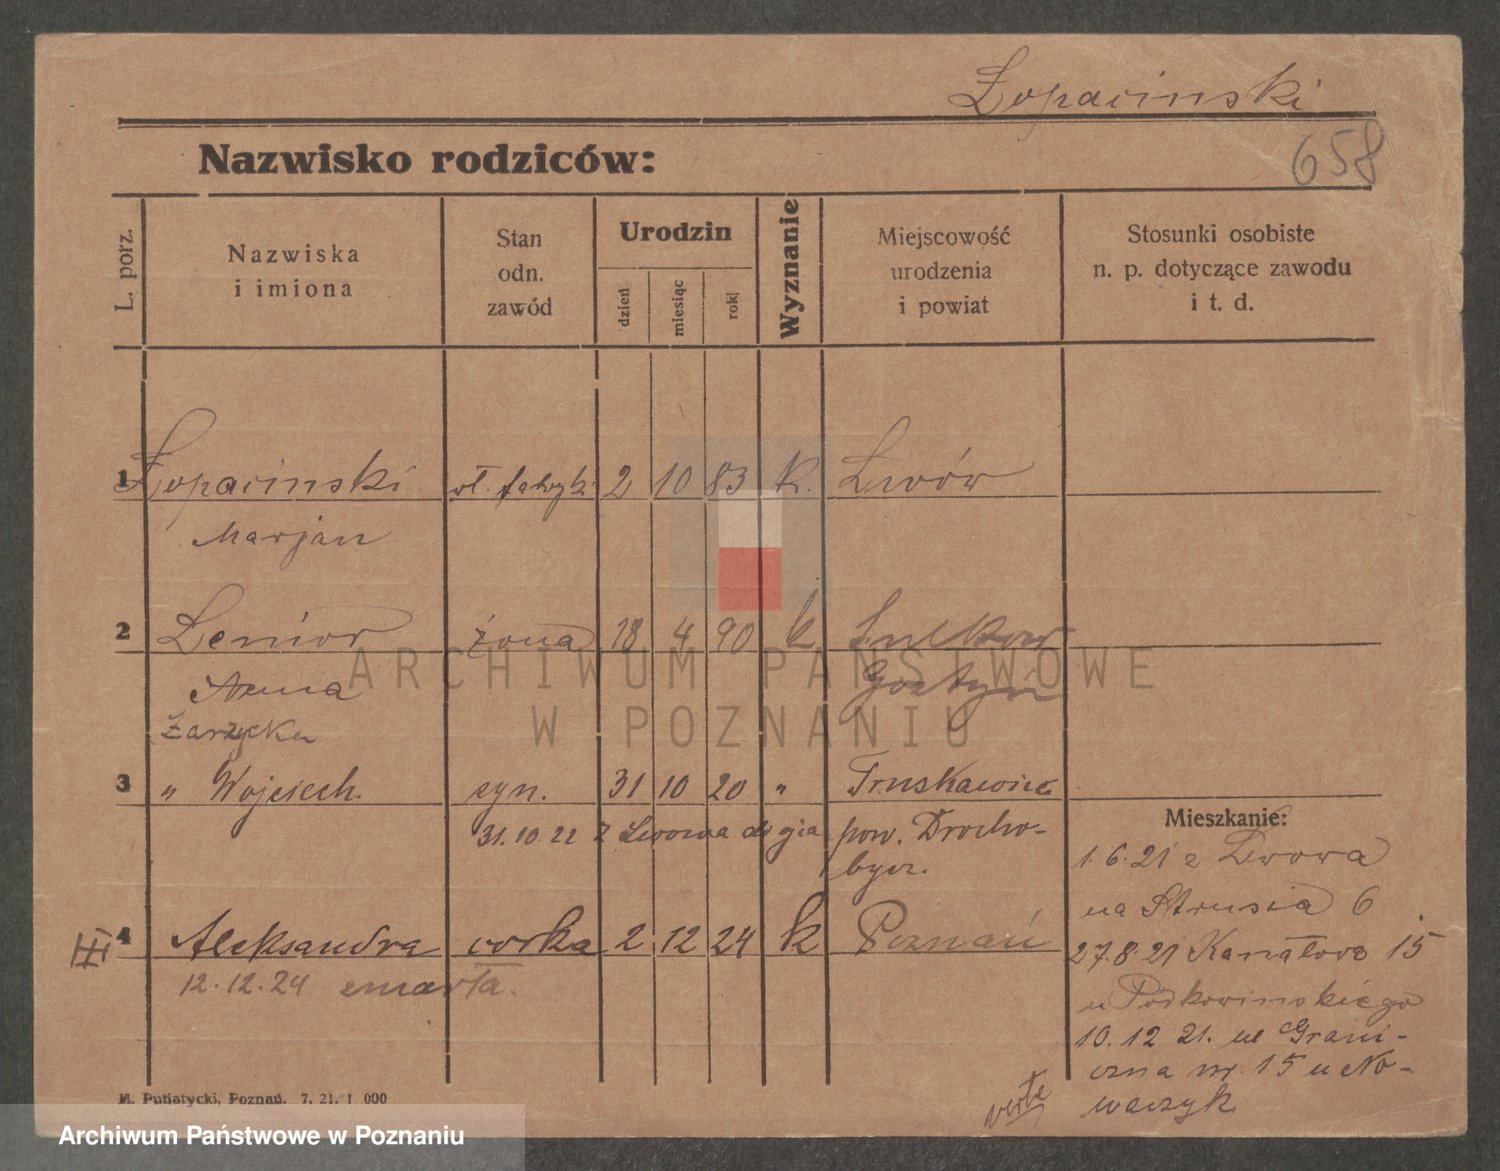 Łopacinski
658
Nazwisko rodziców:
L. porz.
Nazwiska
i imiona
Stan
odn.
zawód
Urodzin
dzień
miesiąc
rok
Wyznanie
Miejscowość
urodzenia
i powiat
Stosunki osobiste
n. p. dotyczące zawodu
i t. d.
1 Łopacinski wł. fabryk. 2 10 83 k. Lwów
Marjan
2 Lenior żona 18 4 90 k
Anna Gostyń
Zarzycka
3 " Wojciech. syn. 31 10 20 " Truskawiec
31.10.22 z Lwowa do pow. Drocho-
bycz.
III 4 Aleksandra corka 2 12 24 k Poznań
12.12.24 zmarła.
Mieszkanie:
1.6.21 z Lwowa
na Strusia 6
27.8.21 Kanałowa 15
u Podkowinskiego
10.12 21. ul Grani-
czna nr. 15 u No-
waczyk
verte
M. Putiatycki, Poznań. 7. 21. 1 000
ARCHIWUM PAŃSTWOWE
W POZNANIU
Archiwum Państwowe w Poznaniu